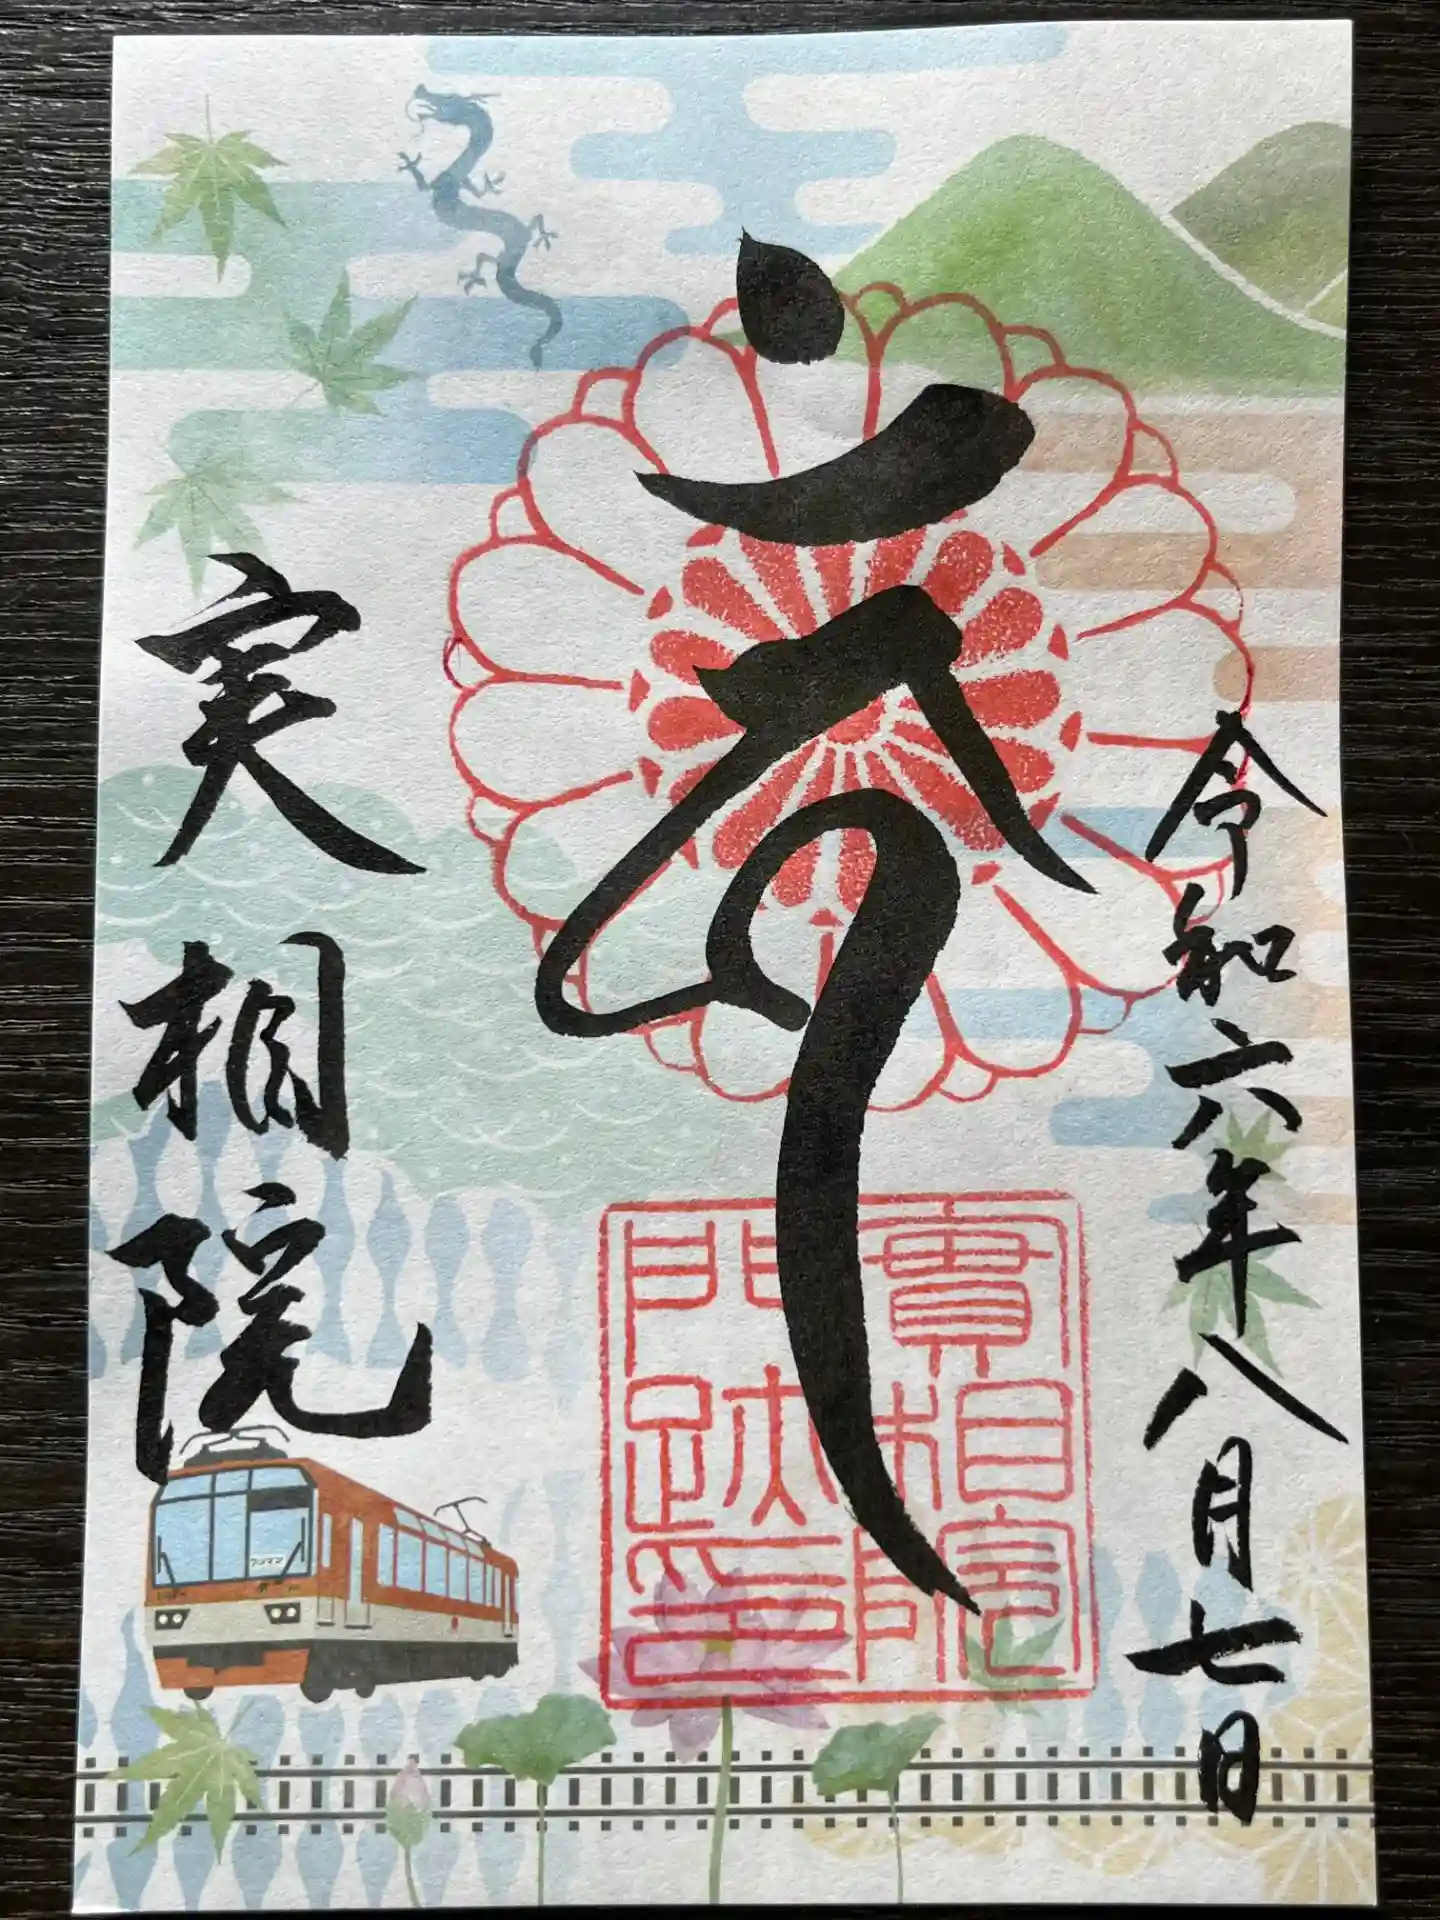 令和六年八月七日
實相院
門跡印
実相院
ワンマン